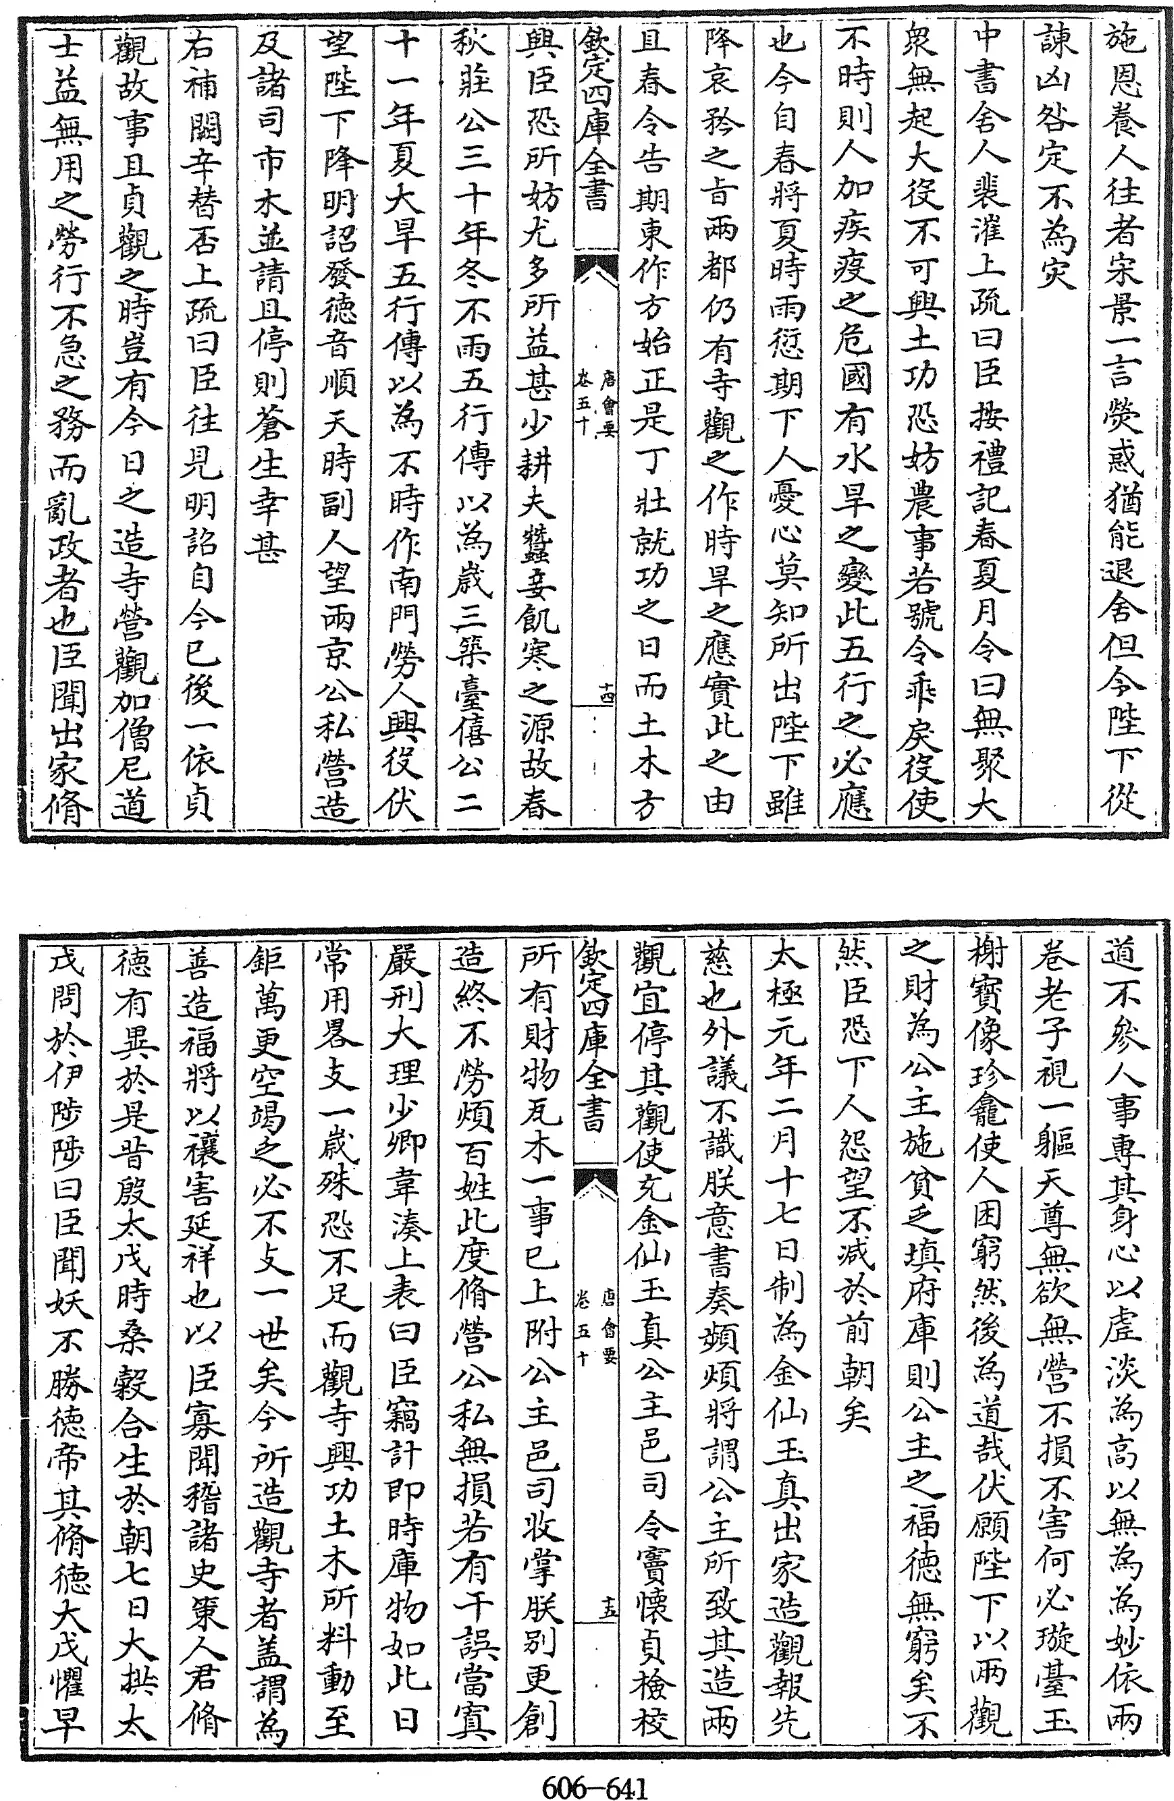 施恩養人往者宋景一言熒惑猶能退舍但今陛下從
諫凶咎定不為灾
中書舍人裴漼上疏曰臣按禮記春夏月令曰無聚大
衆無起大役不可興土功恐妨農事若號令乖戾役使
不時則人加疾疫之危國有水旱之變此五行之必應
也今自春將夏時雨愆期下人憂心莫知所出陛下雖
降哀矜之旨兩都仍有寺觀之作時旱之應實此之由
且春令告期東作方始正是丁壯就功之日而土木方
欽定四庫全書
唐會要
卷五十
十四
興臣恐所妨尤多所益甚少耕夫蠶妾飢寒之源故春
秋莊公三十年冬不雨五行傳以為嵗三築臺僖公二
十一年夏大旱五行傳以為不時作南門勞人興役伏
望陛下降明詔發徳音順天時副人望兩京公私營造
及諸司市木並請且停則蒼生幸甚
右補闕辛替否上疏曰臣往見明詔自今已後一依貞
觀故事且貞觀之時豈有今日之造寺營觀加僧尼道
士益無用之勞行不急之務而亂政者也臣聞出家脩
道不參人事專其身心以虛淡為高以無為為妙依兩
卷老子視一軀天尊無欲無營不損不害何必璇臺玉
榭寶像珍龕使人困窮然後為道哉伏願陛下以兩觀
之財為公主施貧乏填府庫則公主之福徳無窮矣不
然臣恐下人怨望不減於前朝矣
太極元年二月十七日制為金仙玉真出家造觀報先
慈也外議不識朕意書奏頻煩將謂公主所致其造兩
觀宜停其觀使充金仙玉真公主邑司令竇懷貞檢校
欽定四庫全書
唐會要
卷五十
十五
所有財物瓦木一事已上附公主邑司收掌朕別更創
造終不勞煩百姓此度脩營公私無損若有干誤當寘
嚴刑大理少卿韋湊上表曰臣竊計即時庫物如此日
常用畧支一嵗殊恐不足而觀寺興功土木所料動至
鉅萬更空竭之必不支一世矣今所造觀寺者盖謂為
善造福將以禳害延祥也以臣寡聞稽諸史策人君脩
徳有異於是昔殷太戊時桑穀合生於朝七日大拱太
戊問於伊陟陟曰臣聞妖不勝徳帝其脩徳大戊懼早
606-641